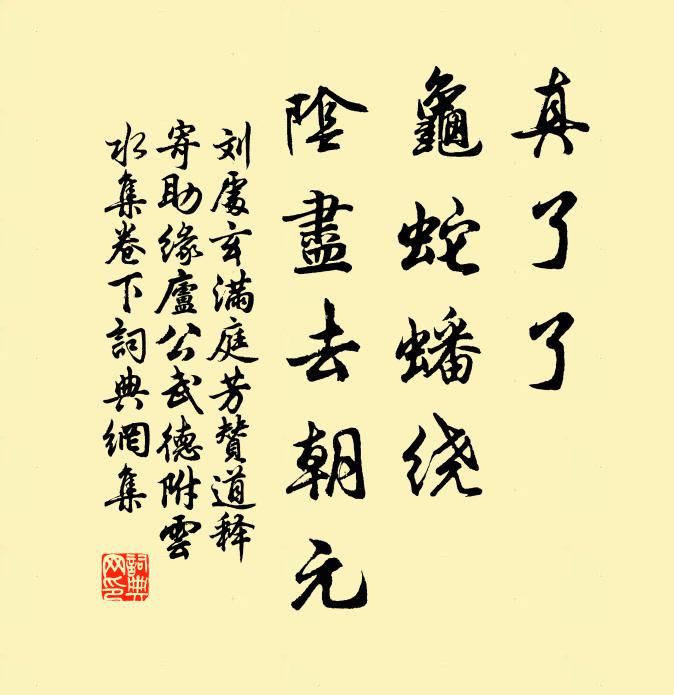 真了了
龜蛇蟠绕
陰盡去朝元
刘處玄满庭芳贊道释
寄助缘廬公武德附雲
水集卷下詞典網集
詞典网印